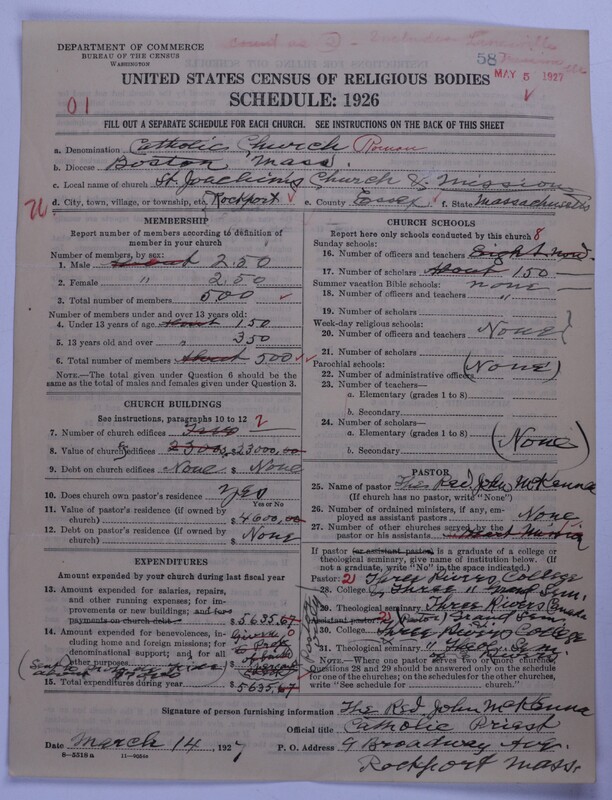 DEPARTMENT OF COMMERCE
BUREAU OF THE CENSUS
WASHINGTON
count as 2 - Includes
58
MAY 5 1927
UNITED STATES CENSUS OF RELIGIOUS BODIES
SCHEDULE: 1926
01
FILL OUT A SEPARATE SCHEDULE FOR EACH CHURCH. SEE INSTRUCTIONS ON THE BACK OF THIS SHEET
a. Denomination Catholic Church Roman
b. Diocese Boston Mass.
c. Local name of church St Joachims Church & Missions
d. City, town, village, or township, etc. Rockport e. County Essex f. State Massachusetts
MEMBERSHIP
Report number of members according to definition of member in your church
Number of members, by sex:
1. Male about 250
2. Female " 250
3. Total number of members 500
Number of members under and over 13 years old:
4. Under 13 years of age about 150
5. 13 years old and over " 350
6. Total number of members about 500
NOTE.—The total given under Question 6 should be the same as the total of males and females given under Question 3.
CHURCH BUILDINGS
See instructions, paragraphs 10 to 12
7. Number of church edifices Two 2
8. Value of church edifices 23000 $ 23000.00
9. Debt on church edifices None $ None
10. Does church own pastor's residence yes
Yes or No
11. Value of pastor's residence (if owned by church) $ 4600.00
12. Debt on pastor's residence (if owned by church) $ None
EXPENDITURES
Amount expended by your church during last fiscal year
13. Amount expended for salaries, repairs, and other running expenses; for improvements or new building; and for payments on church debt $ 5635.67
14. Amount expended for benevolences, including home and foreign missions; for denominational support; and for all other purposes
15. Total expenditures during year $ 5635.67
CHURCH SCHOOLS
Report here only schools conducted by this church
Sunday schools:
16. Number of officers and teachers Eight 8
17. Number of scholars About 150
Summer vacation Bible schools: none
18. Number of officers and teachers "
19. Number of scholars
Week-day religious schools:
20. Number of officers and teachers None
21. Number of scholars
Parochial schools:
22. Number of administrative officers (None)
23. Number of teachers—
a. Elementary (grades 1 to 8)
b. Secondary
24. Number of scholars—
a. Elementary (grades 1 to 8)
b. Secondary
(None)
PASTOR
25. Name of pastor The Red. John McKenna
(If church has no pastor, write "None")
26. Number of ordained ministers, if any, employed as assistant pastors None
27. Number of other churches served by the pastor or his assistants
If pastor (or assistant pastor) is a graduate of a college or theological seminary, give name of institution below. (If not a graduate, write "No" in the space indicated.)
Pastor: Three Rivers College
28. College Three
29. Theological seminary Three Rivers Canada
Assistant pastor: (Pastor) Grand Sem.
30. College Three Rivers College
31. Theological seminary
NOTE.—Where one pastor serves two or more churches, Questions 28 and 29 should be answered only on the schedule for one of the churches; on the schedules for the other churches, write "See schedule for church."
Signature of person furnishing information The Red John McKenna
Official title Catholic Priest
Date March 14, 1927 P. O. Address 9 Broadway Ave.
Rockport Mass.
8—5518a 11—9056a